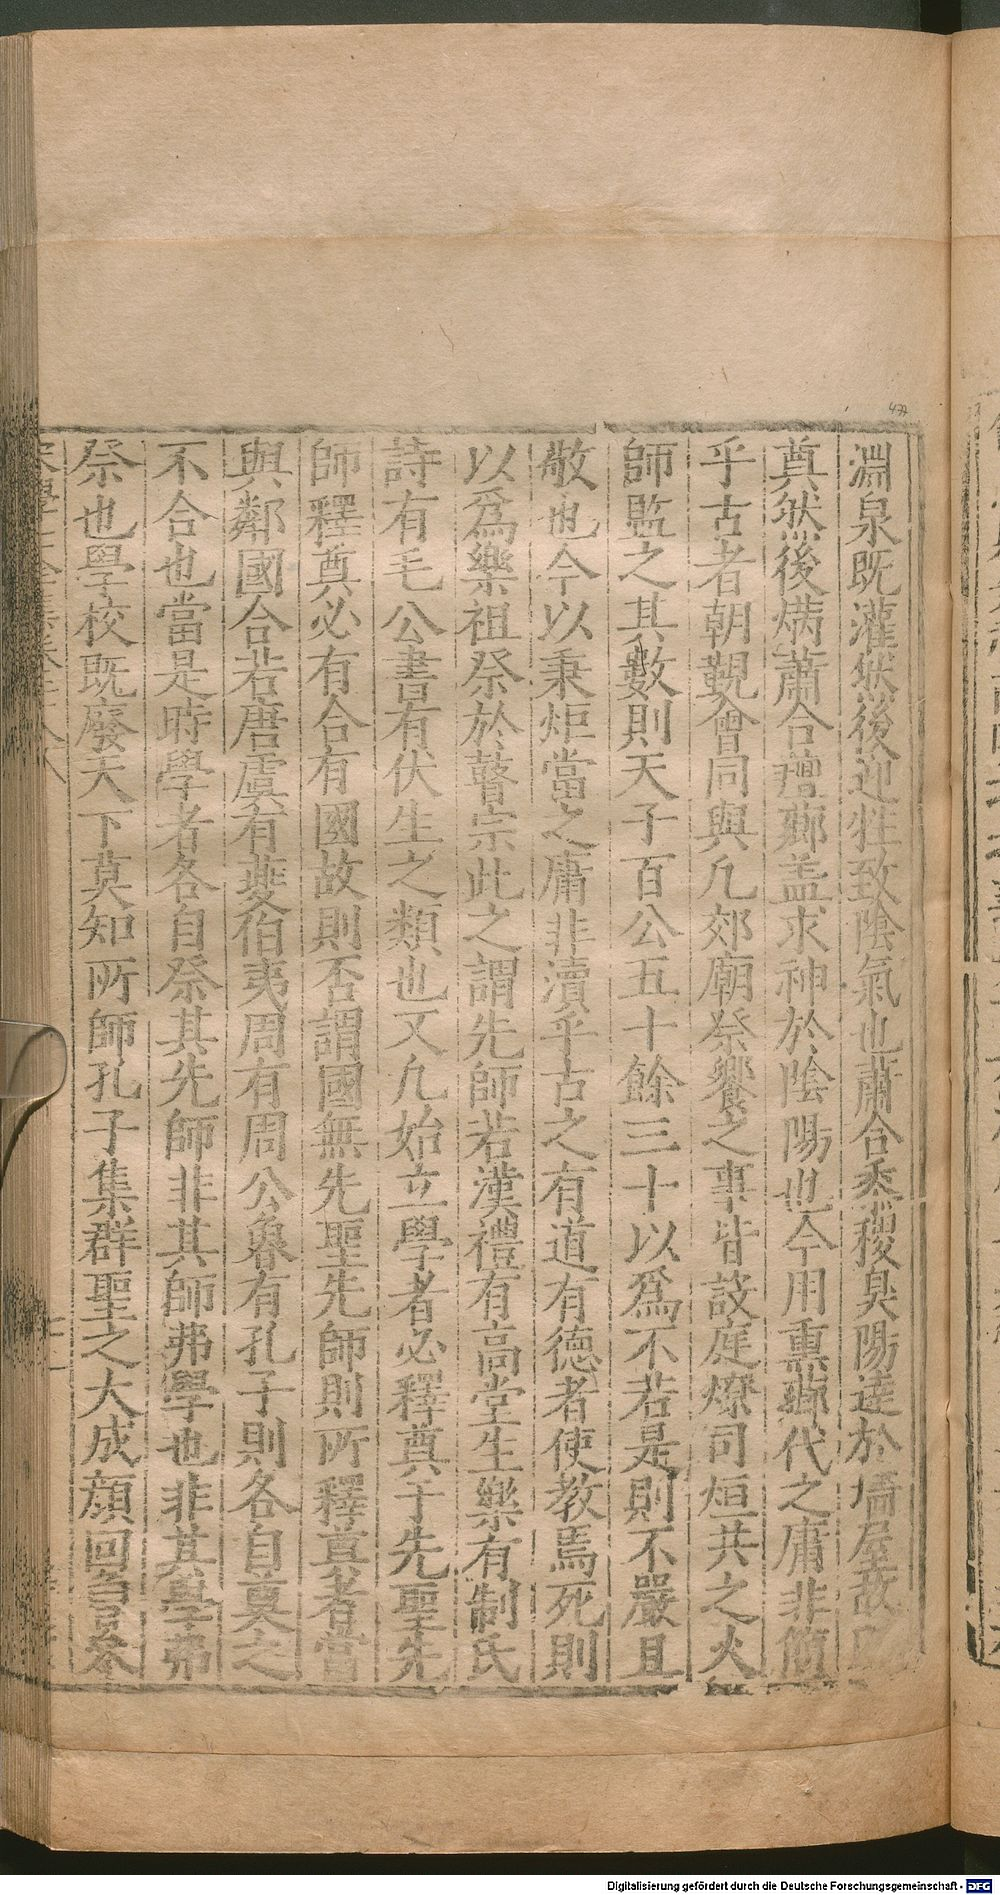 淵泉既灌然後迎牲致陰氣也蕭合黍稷臭陽達於墻屋故
奠然後焫蕭合羶薌盖求神於陰陽也今用熏薌代之庸非簡
乎古者朝覲會同與凡郊廟祭饗之事皆設庭燎司烜共之火
師監之其數則天子百公五十餘三十以爲不若是則不嚴且
敬也今以秉炬當之庸非瀆乎古之有道有德者使教焉死則
以爲樂祖祭於瞽宗此之謂先師若漢禮有高堂生樂有制氏
詩有毛公書有伏生之類也又凡始立學者必釋奠于先聖先
師釋奠必有合有國故則否謂國無先聖先師則所釋奠者當
與鄰國合若唐虞有夔伯夷周有周公魯有孔子則各自奠之
不合也當是時學者各自祭其先師非其師弗學也非其學弗
祭也學校既廢天下莫知所師孔子集群聖之大成顔回曾參
477
Digitalisierung gefördert durch die Deutsche Forschungsgemeinschaft - DFG